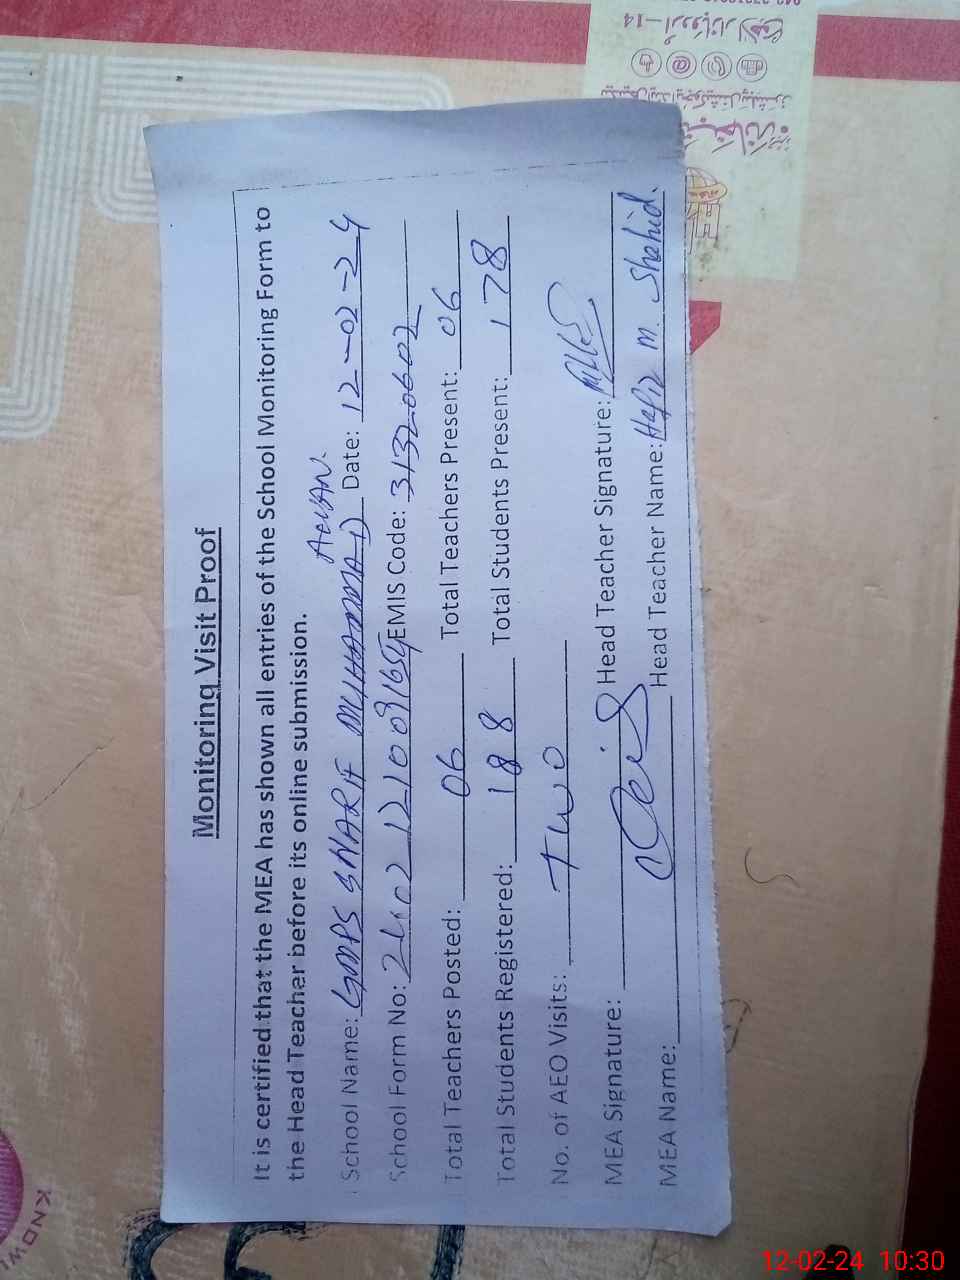 Monitoring Visit Proof
It is certified that the MEA has shown all entries of the School Monitoring Form to
the Head Teacher before its online submission.
School Name: GMPS SHARIF MUHAMMAD AWAN. Date: 12-02-24
School Form No: EMIS Code: 31320602
Total Teachers Posted: 06 Total Teachers Present: 06
Total Students Registered: 188 Total Students Present: 178
No. of AEO Visits: Two
MEA Signature: Head Teacher Signature:
MEA Name: Head Teacher Name: Hafiz M. Shahid.
KNOWL
12-02-24 10:30